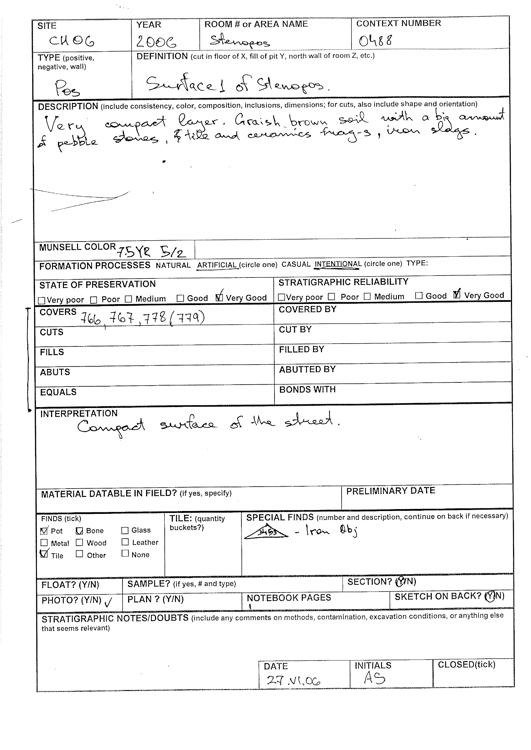 SITE YEAR ROOM # or AREA NAME CONTEXT NUMBER
CH06 2006 Stenopos 0488
TYPE (positive, negative, wall) DEFINITION (cut in floor of X, fill of pit Y, north wall of room Z, etc.)
Pos Surface 1 of Stenopos.
DESCRIPTION (include consistency, color, composition, inclusions, dimensions; for cuts, also include shape and orientation)
Very compact layer. Graish brown soil with a big amount
of pebble stones, & tile and ceramics frag-s, iron slags.
MUNSELL COLOR 7.5YR 5/2
FORMATION PROCESSES NATURAL ARTIFICIAL (circle one) CASUAL INTENTIONAL (circle one) TYPE:
STATE OF PRESERVATION STRATIGRAPHIC RELIABILITY
Very poor Poor Medium Good Very Good Very poor Poor Medium Good Very Good
COVERS 766, 767, 778 (779) COVERED BY
CUTS CUT BY
FILLS FILLED BY
ABUTS ABUTTED BY
EQUALS BONDS WITH
INTERPRETATION
Compact surface of the street.
MATERIAL DATABLE IN FIELD? (if yes, specify) PRELIMINARY DATE
FINDS (tick) TILE: (quantity buckets?) SPECIAL FINDS (number and description, continue on back if necessary)
Pot Bone Glass - Iron Obj
Metal Wood Leather
Tile Other None
FLOAT? (Y/N) SAMPLE? (if yes, # and type) SECTION? (Y/N)
PHOTO? (Y/N) PLAN ? (Y/N) NOTEBOOK PAGES SKETCH ON BACK? (Y/N)
STRATIGRAPHIC NOTES/DOUBTS (include any comments on methods, contamination, excavation conditions, or anything else
that seems relevant)
DATE INITIALS CLOSED(tick)
27.VI.06 AS